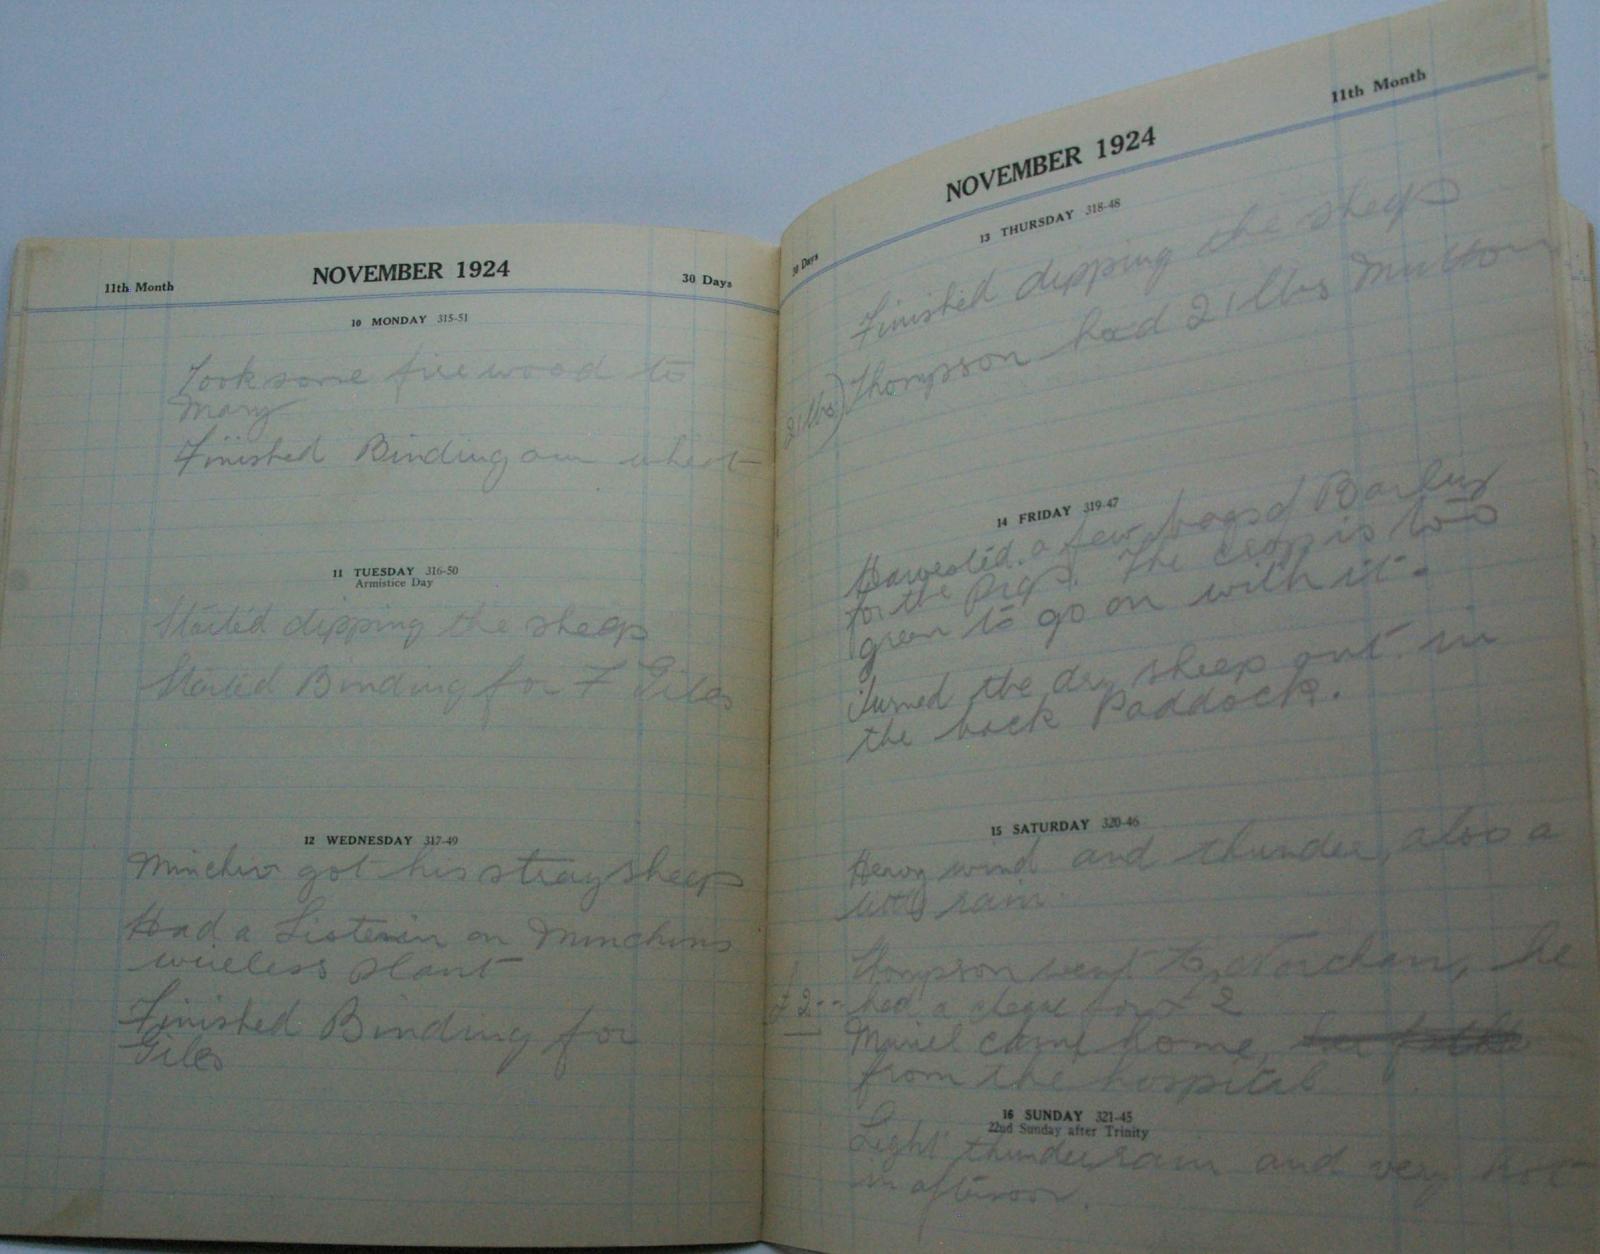 11th Month NOVEMBER 1924 30 Days
10 MONDAY 315-51
Took some fire wood to
Mary
Finished Binding our wheat
11 TUESDAY 316-50
Armistice Day
Started dipping the sheep
Started Binding for F Giles
12 WEDNESDAY 317-49
Minchin got his stray sheep
Had a Listen in on Minchins
wireless plant
Finished Binding for
Giles
30 Days NOVEMBER 1924 11th Month
13 THURSDAY 318-48
Finished dipping the sheep
21 lbs) Thompson had 21 lbs Mutton
14 FRIDAY 319-47
Harvested a few bags of Barley
for the Pigs. The crop is too
green to go on with it.
Turned the dry sheep out in
the back Paddock.
15 SATURDAY 320-46
Heavy wind and thunder, also a
little rain
Thompson went to, he
£2-- had a cheque for £2
Muriel came home,
from the hospital
16 SUNDAY 321-45
22nd Sunday after Trinity
Light thunder rain and very hot
in afternoon.